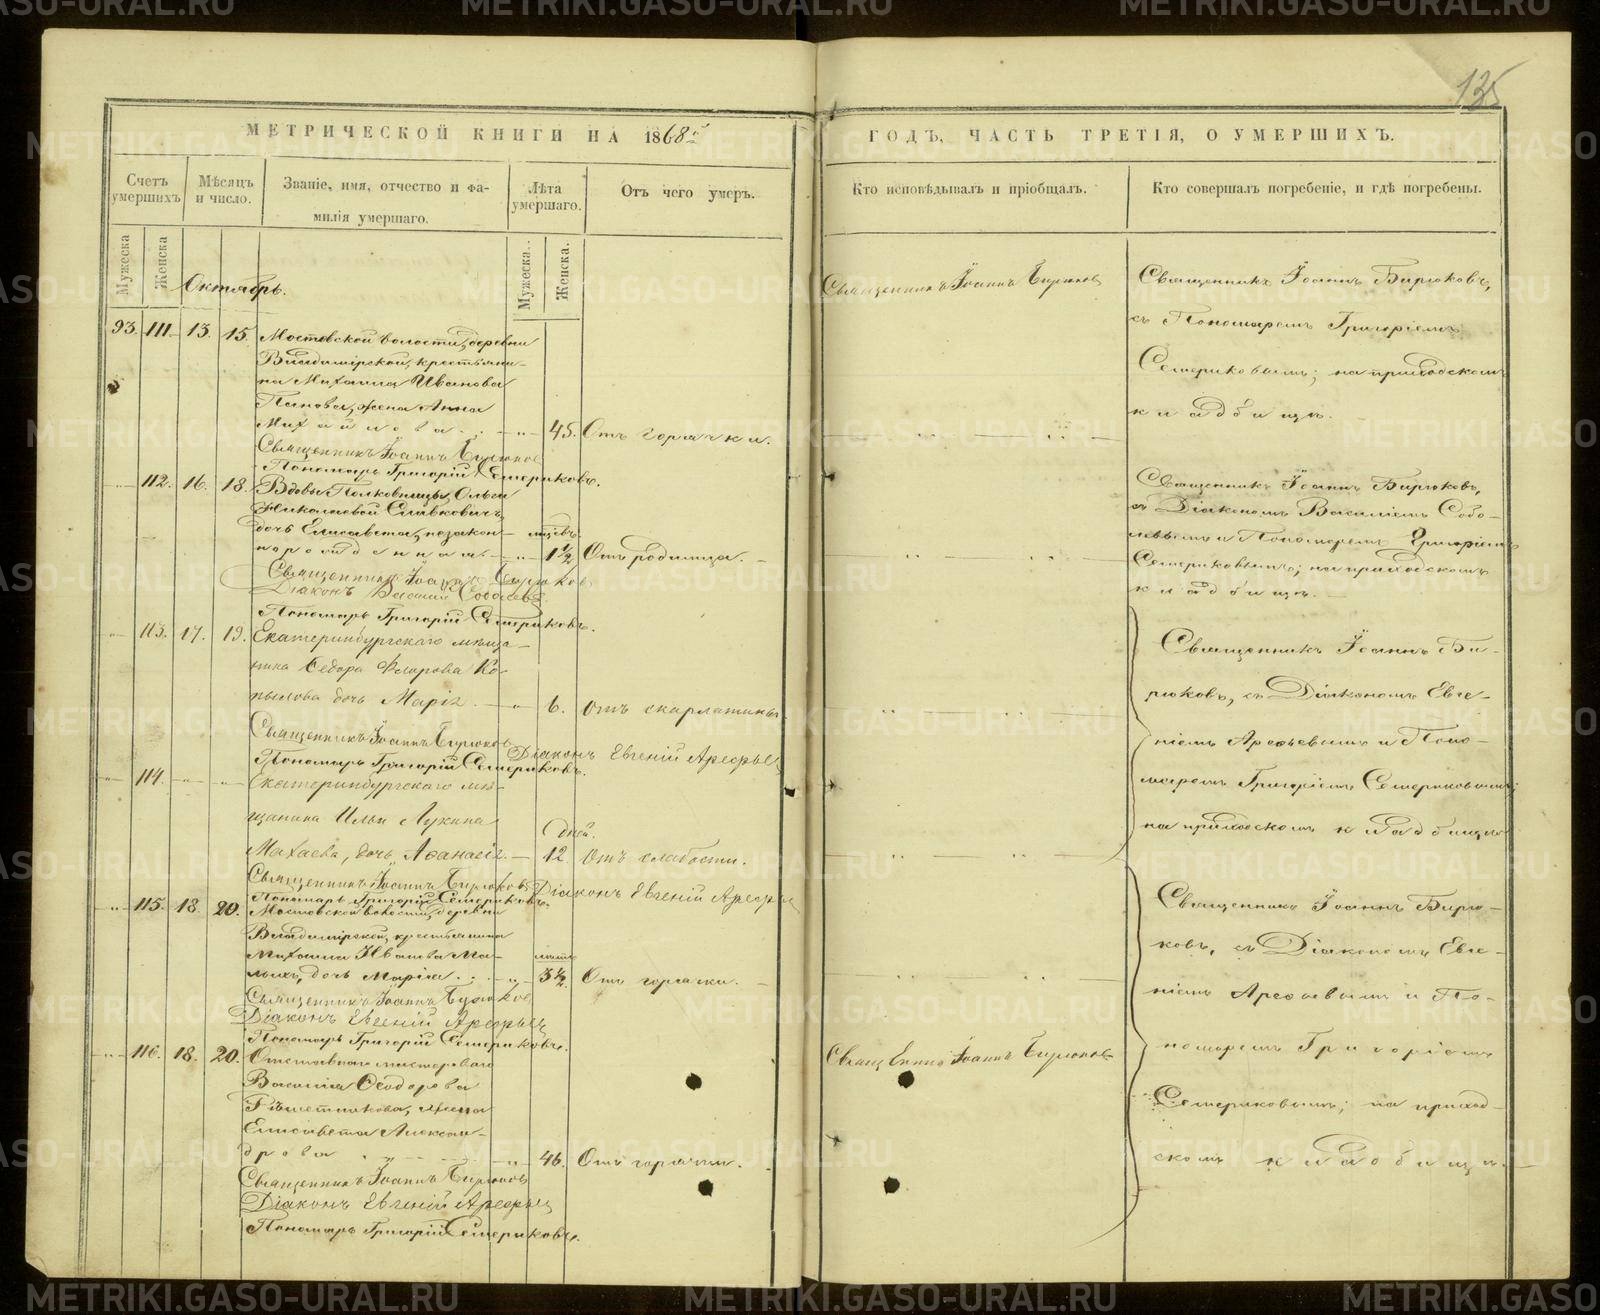 METRIKI.GASO-URAL.RU
135
МЕТРИЧЕСКОЙ КНИГИ НА 1868й
ГОДЪ, ЧАСТЬ ТРЕТІЯ, О УМЕРШИХЪ.
Счетъ умершихъ
Мѣсяцъ и число.
Званіе, имя, отчество и фа-
милія умершаго.
Лѣта умершаго.
Отъ чего умеръ.
Кто исповѣдывалъ и пріобщалъ.
Кто совершалъ погребеніе, и гдѣ погребены.
Мужеска
Женска
Мужеска.
Женска.
Октябрь.
93. 111. 13. 15. Мостовской волости, деревни
Владимірской, крестьяни-
на Михаила Иванова
Панова, жена Анна
Михайлова. 45. Отъ горячки.
Священникъ Іоаннъ Бирюковъ
Пономарь Григорій Семериковъ.
Священникъ Іоаннъ Бирюковъ
Священникъ Іоаннъ Бирюковъ,
съ Пономаремъ Григоріемъ
Семериковымъ; на приходскомъ
кладбищѣ.
112. 16. 18. Вдовы Полковницы, Ольги
Николаевой Славковичъ,
дочь Елисавета, незакон-
норожденная. мцовъ. 1½ Отъ родимца.
Священникъ Іоаннъ Бирюковъ
Діаконъ Василій Соболевъ
Пономарь Григорій Семериковъ.
Священникъ Іоаннъ Бирюковъ,
съ Діакономъ Василіемъ Собо-
левымъ и Пономаремъ Григоріемъ
Семериковымъ; на приходскомъ
кладбищѣ.
113. 17. 19. Екатеринбургскаго мѣща-
нина Ѳедора Фларова Ко-
пылова дочь Марія. 6. Отъ скарлатины
Священникъ Іоаннъ Бирюковъ
Діаконъ Евгеній Арефьевъ
Пономарь Григорій Семериковъ.
114. Екатеринбургскаго мѣ-
щанина Ильи Лукина
Махаева, дочь Аѳанасія. Дней. 12. Отъ слабости.
Священникъ Іоаннъ Бирюковъ
Діаконъ Евгеній Арефьевъ
Пономарь Григорій Семериковъ.
Священникъ Іоаннъ Би-
рюковъ, съ Діакономъ Евге-
ніемъ Арефьевымъ и Поно-
маремъ Григоріемъ Семериковымъ;
на приходскомъ кладбищѣ
115. 18. 20. Мостовской волости, деревни
Владимірской, крестьянина
Михаила Иванова Ма-
лыхъ, дочь Марія. 3½. Отъ горячки.
Священникъ Іоаннъ Бирюковъ
Діаконъ Евгеній Арефьевъ
Пономарь Григорій Семериковъ.
116. 18. 20. Отставнаго мастероваго
Василія Ѳеодорова
Рѣшетникова, жена
Елисавета Алексан-
дрова 46. Отъ горячки.
Священникъ Іоаннъ Бирюковъ
Діаконъ Евгеній Арефьевъ
Пономарь Григорій Семериковъ.
Священникъ Іоаннъ Бирюковъ
Священникъ Іоаннъ Бирю-
ковъ, съ Діакономъ Евге-
ніемъ Арефьевымъ и По-
номаремъ Григоріемъ
Семериковымъ; на приход-
скомъ кладбищѣ.